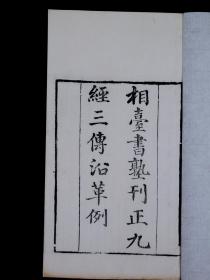 相臺書塾刊正九
經三傳沿革例